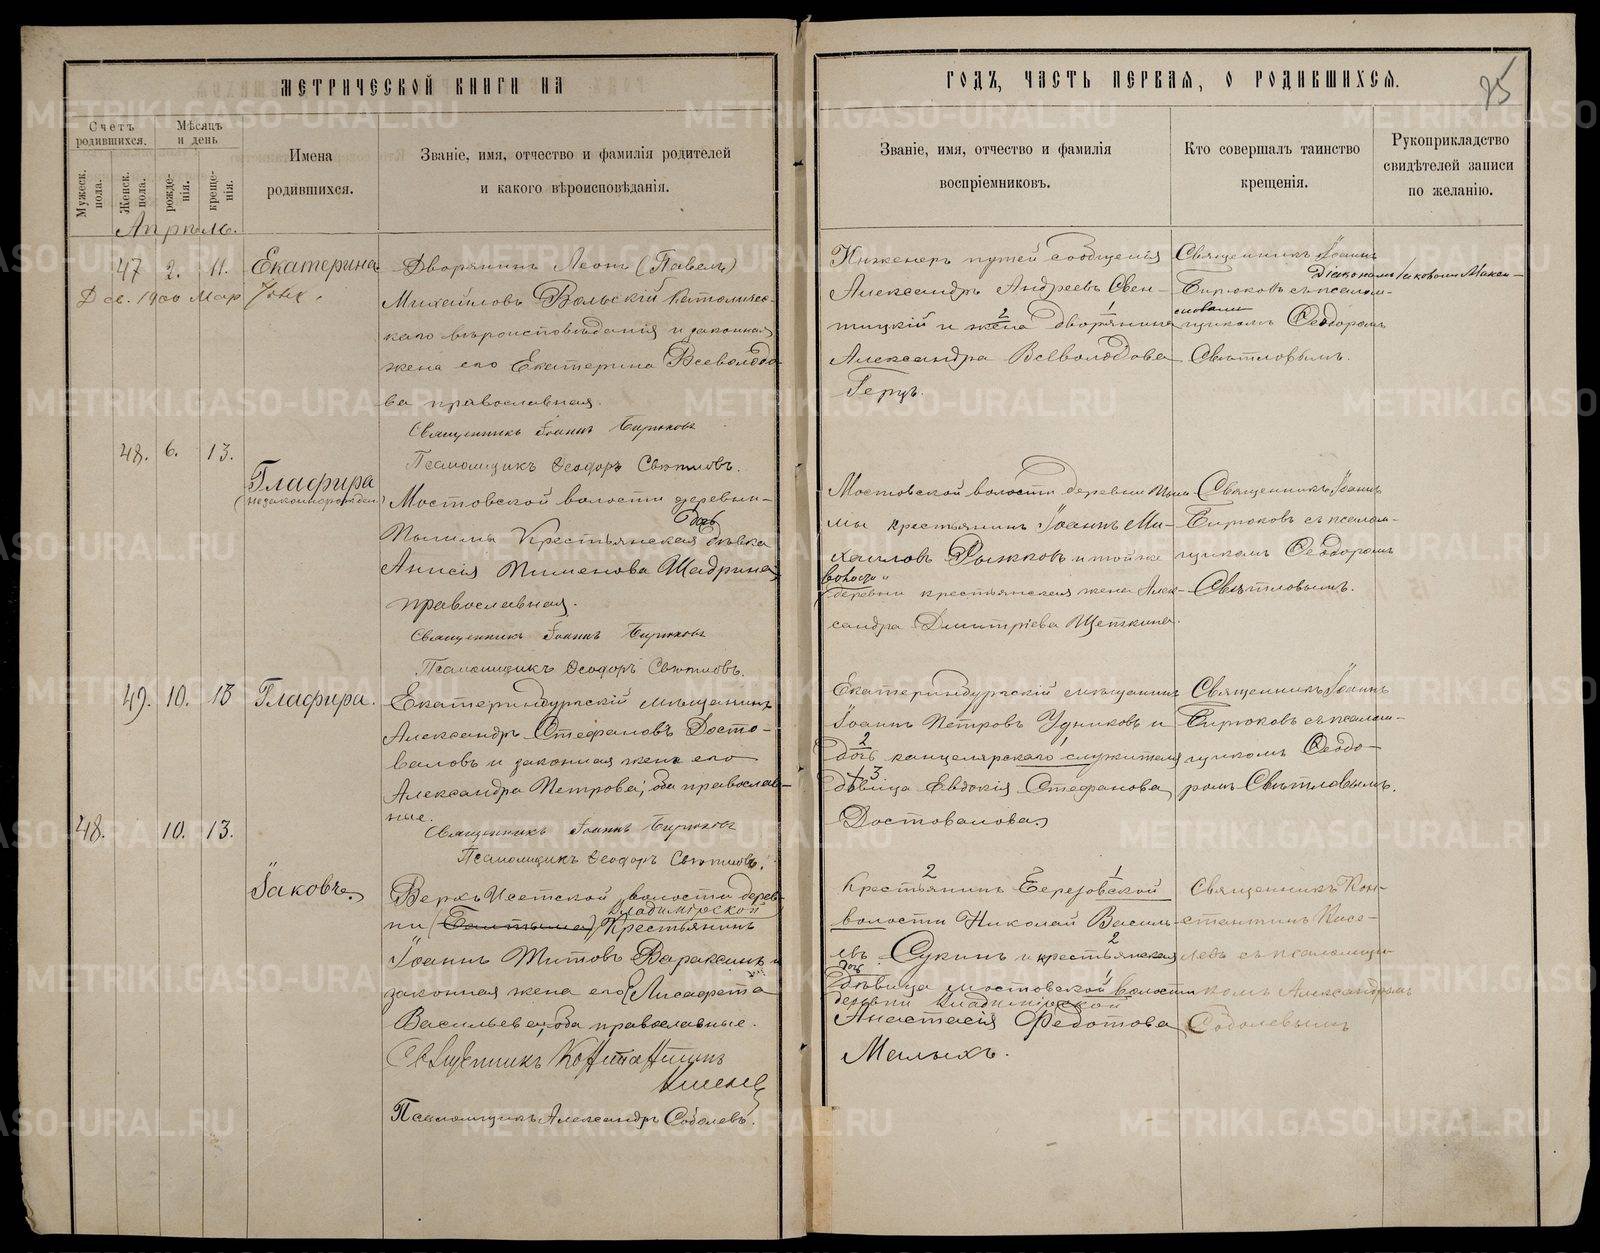 МЕТРИЧЕСКОЙ КНИГИ НА
ГОДЪ, ЧАСТЬ ПЕРВАЯ, О РОДИВШИХСЯ.
Счетъ родившихся.
Мѣсяцъ и день
Мужеск. пола.
Женск. пола.
рожде-
нія.
креще-
нія.
Имена
родившихся.
Званіе, имя, отчество и фамилія родителей
и какого вѣроисповѣданія.
Званіе, имя, отчество и фамилія
воспріемниковъ.
Кто совершалъ таинство
крещенія.
Рукоприкладство
свидѣтелей записи
по желанію.
Апрѣль.
47 2. 11. Екатерина
Дворянинъ Леонъ (Павелъ)
Михайловъ Вольскій католичес-
каго вѣроисповѣданія и законная
жена его Екатерина Всеволодо-
ва православная.
Священникъ Іоаннъ Бирюковъ
Псаломщикъ Ѳеодоръ Свѣтловъ.
Инженеръ путей сообщенія
Александръ Андреевъ Свен-
тицкій и жена дворянина
Александра Всеволодова
Герцъ.
Священникъ Іоаннъ
Бирюковъ съ псалом-
щикомъ Ѳеодоромъ
Свѣтловымъ.
48. 6. 13.
Глафира
(незаконнорожден.)
Мостовской волости деревни
Мостовской волости деревни
дочь
крестьянская дѣвка
Анисія Пименова Щадрина,
православная.
Священникъ Іоаннъ Бирюковъ
Псаломщикъ Ѳеодоръ Свѣтловъ.
крестьянинъ Іоаннъ Ми-
хаиловъ Рыжковъ и той же
волости
деревни крестьянская жена Алек-
сандра Дмитріева Щепкина.
Священникъ Іоаннъ
Бирюковъ съ псалом-
щикомъ Ѳеодоромъ
Свѣтловымъ.
49. 10. 13 Глафира.
Екатеринбургскій мѣщанинъ
Александръ Стефановъ Досто-
валовъ и законная жена его
Александра Петрова, оба православ-
ные.
Священникъ Іоаннъ Бирюковъ
Псаломщикъ Ѳеодоръ Свѣтловъ.
Екатеринбургскій мѣщанинъ
Іоаннъ Петровъ и
дочь канцелярскаго служителя
дѣвица Евдокія Стефанова
Достовалова.
Священникъ Іоаннъ
Бирюковъ съ псалом-
щикомъ Ѳеодо-
ромъ Свѣтловымъ.
48. 10. 13.
Іаковъ.
Верхъ Исетской волости дерев-
Владимірской
ни крестьянинъ
Іоаннъ Титовъ Вараксинъ и
законная жена его Елисафета
Васильева, оба православные.
Священникъ Константинъ
Псаломщикъ Александръ Соболевъ.
Крестьянинъ Березовской
волости Николай Василь-
евъ Сукинъ и крестьянская
дочь
дѣвица Мостовской волости
деревни Владимірской
Анастасія Федотова
Малыхъ.
Священникъ Кон-
стантинъ Кисе-
левъ съ псаломщи-
комъ Александромъ
Соболевымъ
METRIKI.GASO-URAL.RU